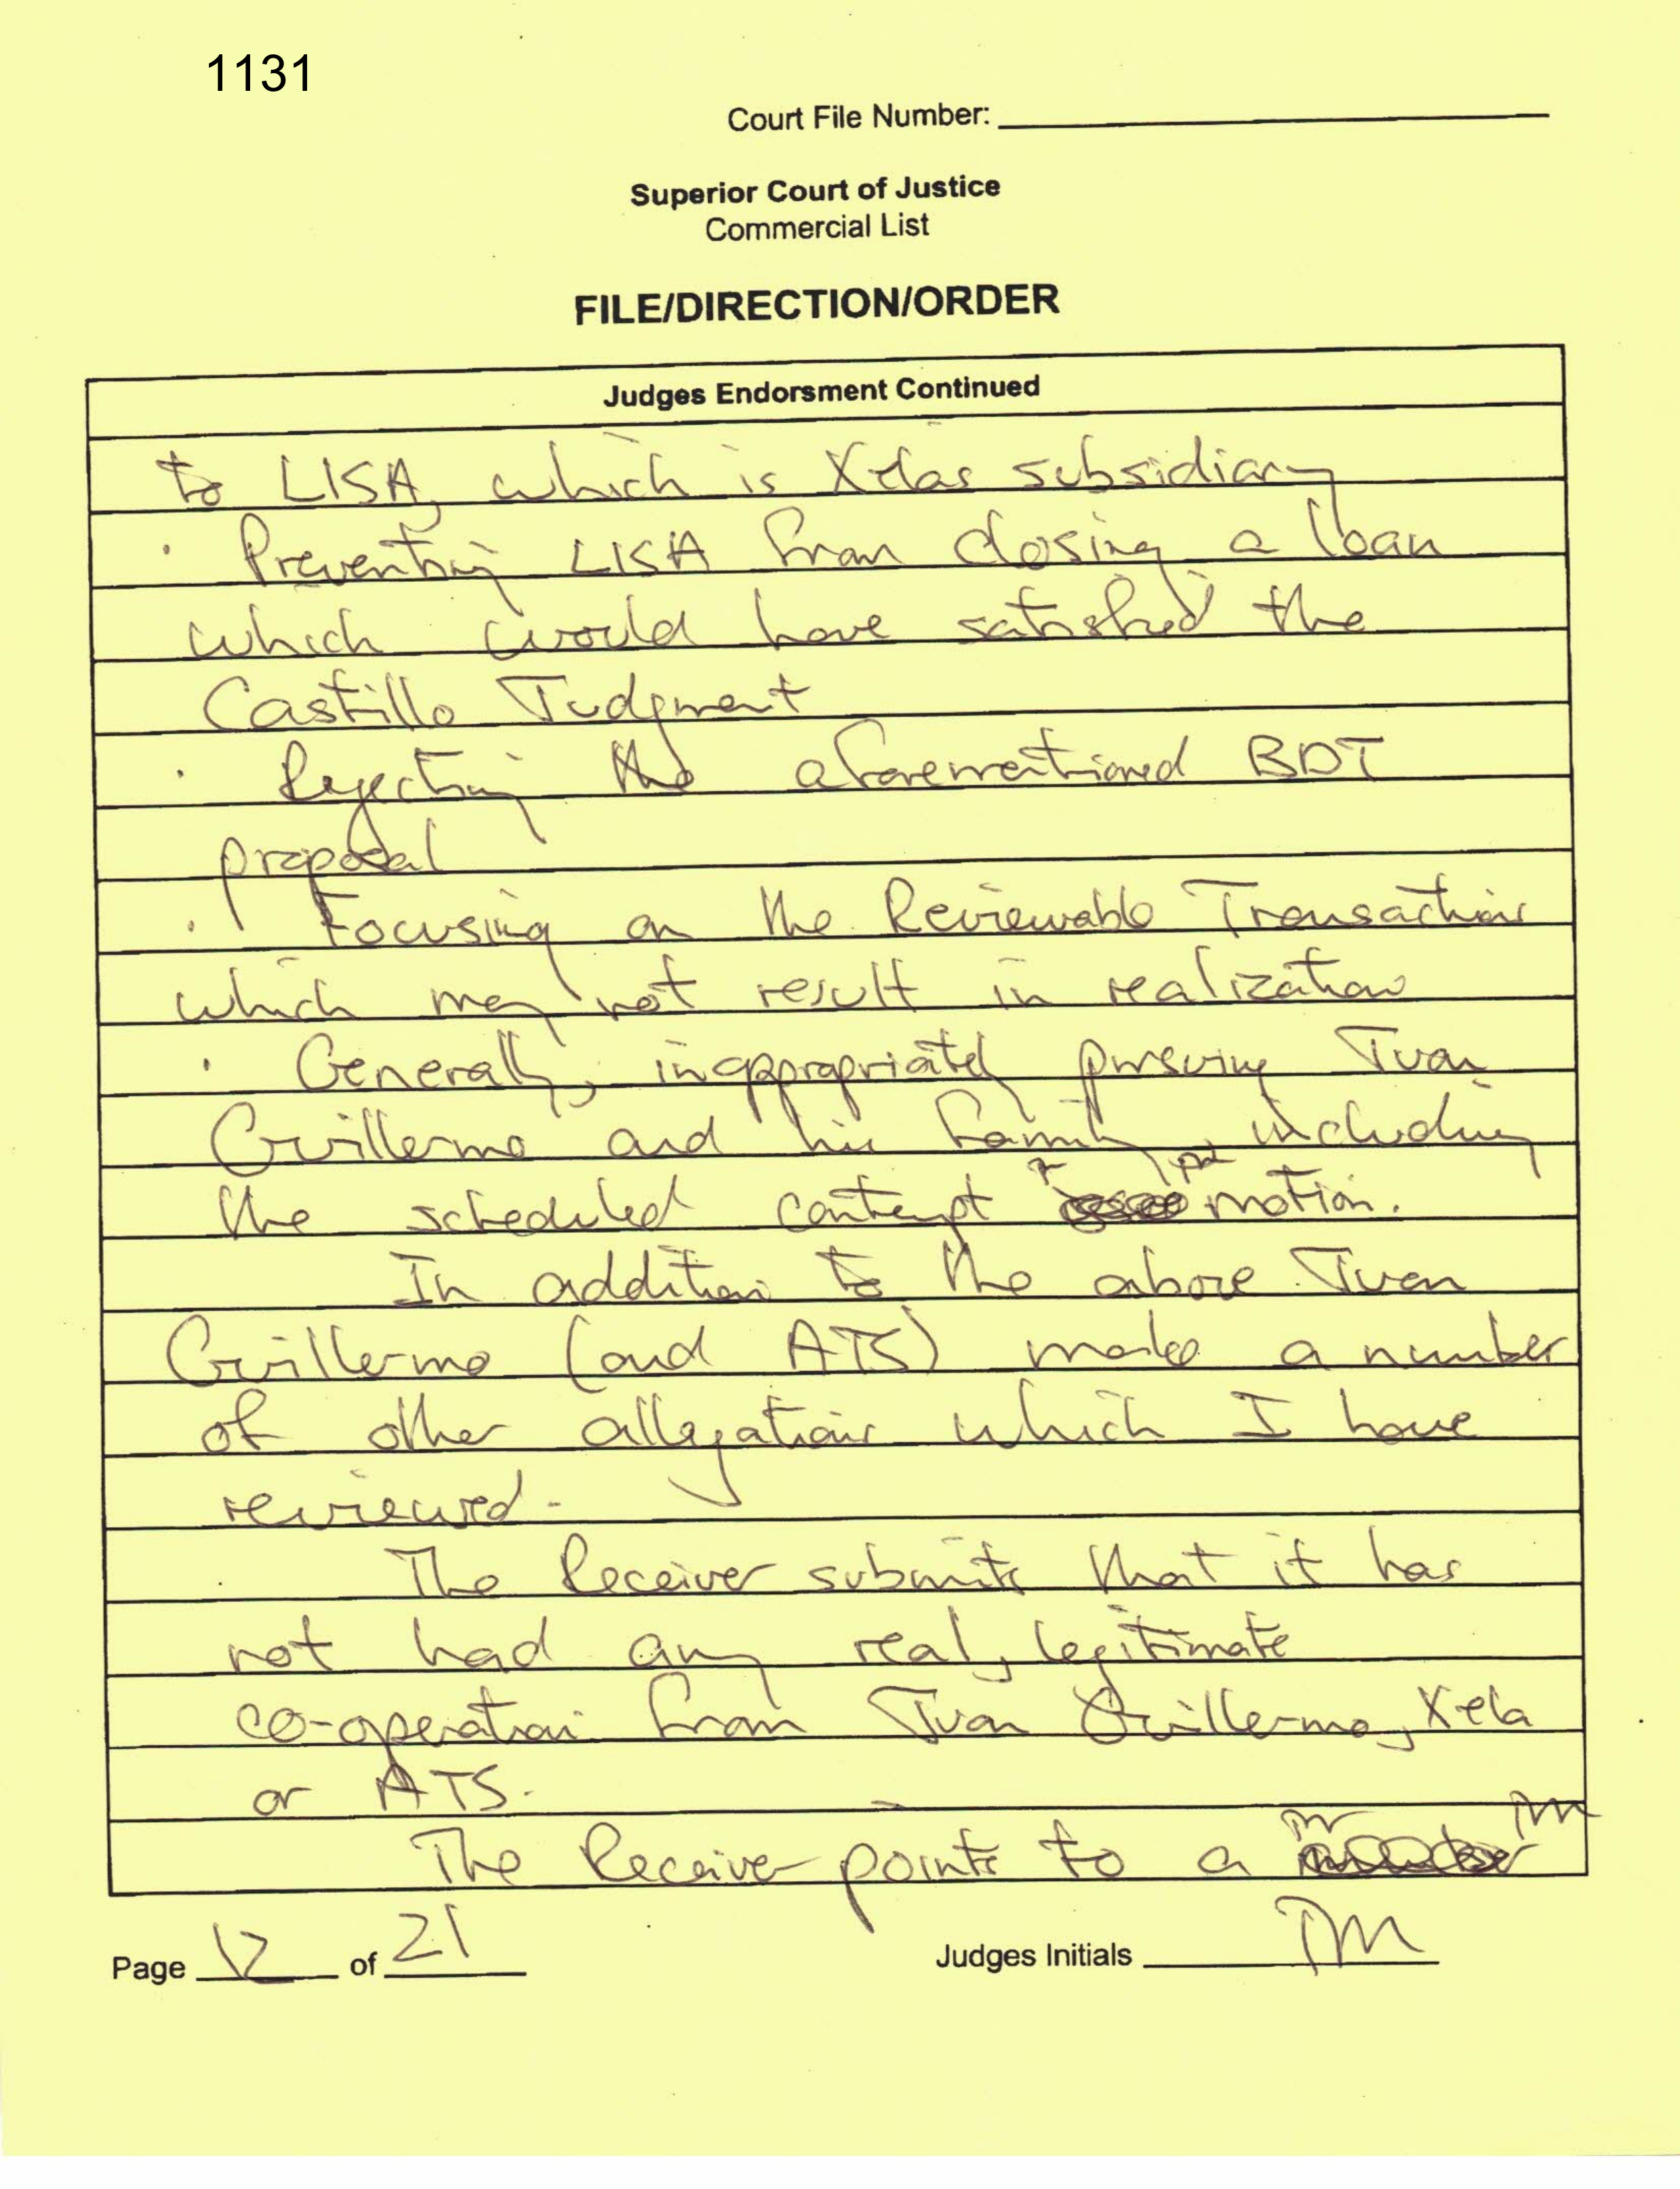 1131
Court File Number:
Superior Court of Justice
Commercial List
FILE/DIRECTION/ORDER
Judges Endorsment Continued
to LISA, which is Xelas subsidiary
· Preventing LISA from closing a loan
which would have satisfied the
Castillo Judgment
· Rejecting the aforementioned BDT
proposal
· Focusing on the Reviewable Transactions
which may not result in realization
· Generally, inappropriately pursuing Juan
Guillermo and his family, including
the scheduled contempt motion.
In addition to the above Juan
Guillermo (and ATS) makes a number
of other allegations which I have
reviewed.
The Receiver submits that it has
not had any real, legitimate
co-operation from Juan Guillermo, Xela
or ATS.
The Receiver points to a
Page 12 of 21
Judges Initials